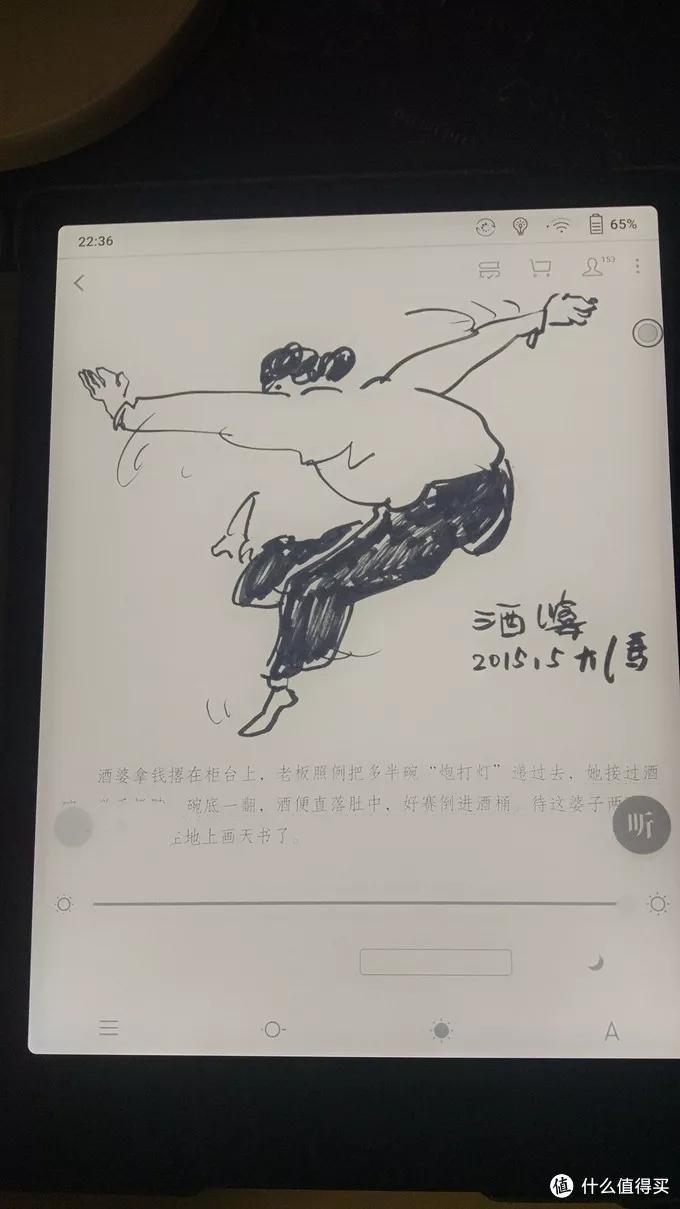 22:36
65%
153
酒婆
2015.5
酒婆拿钱撂在柜台上，老板照例把多半碗“炮打灯”递过去，她接过酒
碗底一翻，酒便直落肚中，好赛倒进酒桶。待这婆子两
地上画天书了。
听
A
值 什么值得买